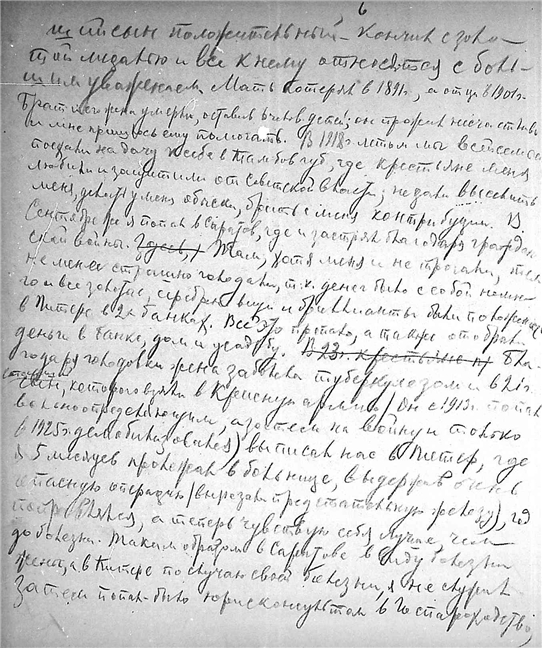 6
ший сын положительный. Кончил с золо-
той медалью и все к нему относятся с боль-
шим уважением. Мать потерял в 1891г., а отца в 1901г.
Брат и его жена умерли, оставив детей; он прожил несчастливо
и мне пришлось ему помогать. В 1918г. летом мы всей семьей
поехали на дачу к себе в Тамбов. губ., где крестьяне меня
любили и защитили от Советской власти; не дали выселить
меня, делать у меня обыски, брать с меня контрибуции. В
Сентябре же я попал в Саратов, где и застрял благодаря граждан-
ской войны. Здесь, Там, хотя меня и не трогали, тем
не менее страшно голодали, т.к. денег было с собой немно-
го и все золотые, серебрян. вещи и бриллианты были положены
в Питере в 2х банках. Все это пропало, а также отобрали
деньги в банке, дом и усадьбу. В 23г. крестьяне Бла-
годаря голодовки жена заболела туберкулозом и в 21г.
старший
сын, которого взяли в Красную армию (он с 1913г. попал
вольноопределяющим, а затем на войну и только
в 1925г. демобилизовался) выписал нас в Питер, где
я 5 месяцев пролежал в больнице, выдержав очень
опасную операцию (вырезали предстательную железу), год
поправлялся, а теперь чувствую себя лучше, чем
до болезни. Таким образом в Саратове в виду болезни
жены, а в Питере по случаю своей болезни, я не служил
затем попал было юрисконсультом в Госпароходство,